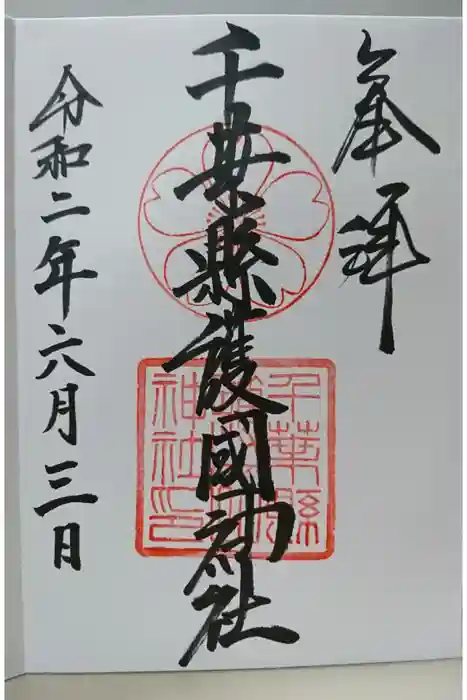 奉拝
千葉縣護國神社
令和二年六月三日
千葉縣護國神社印